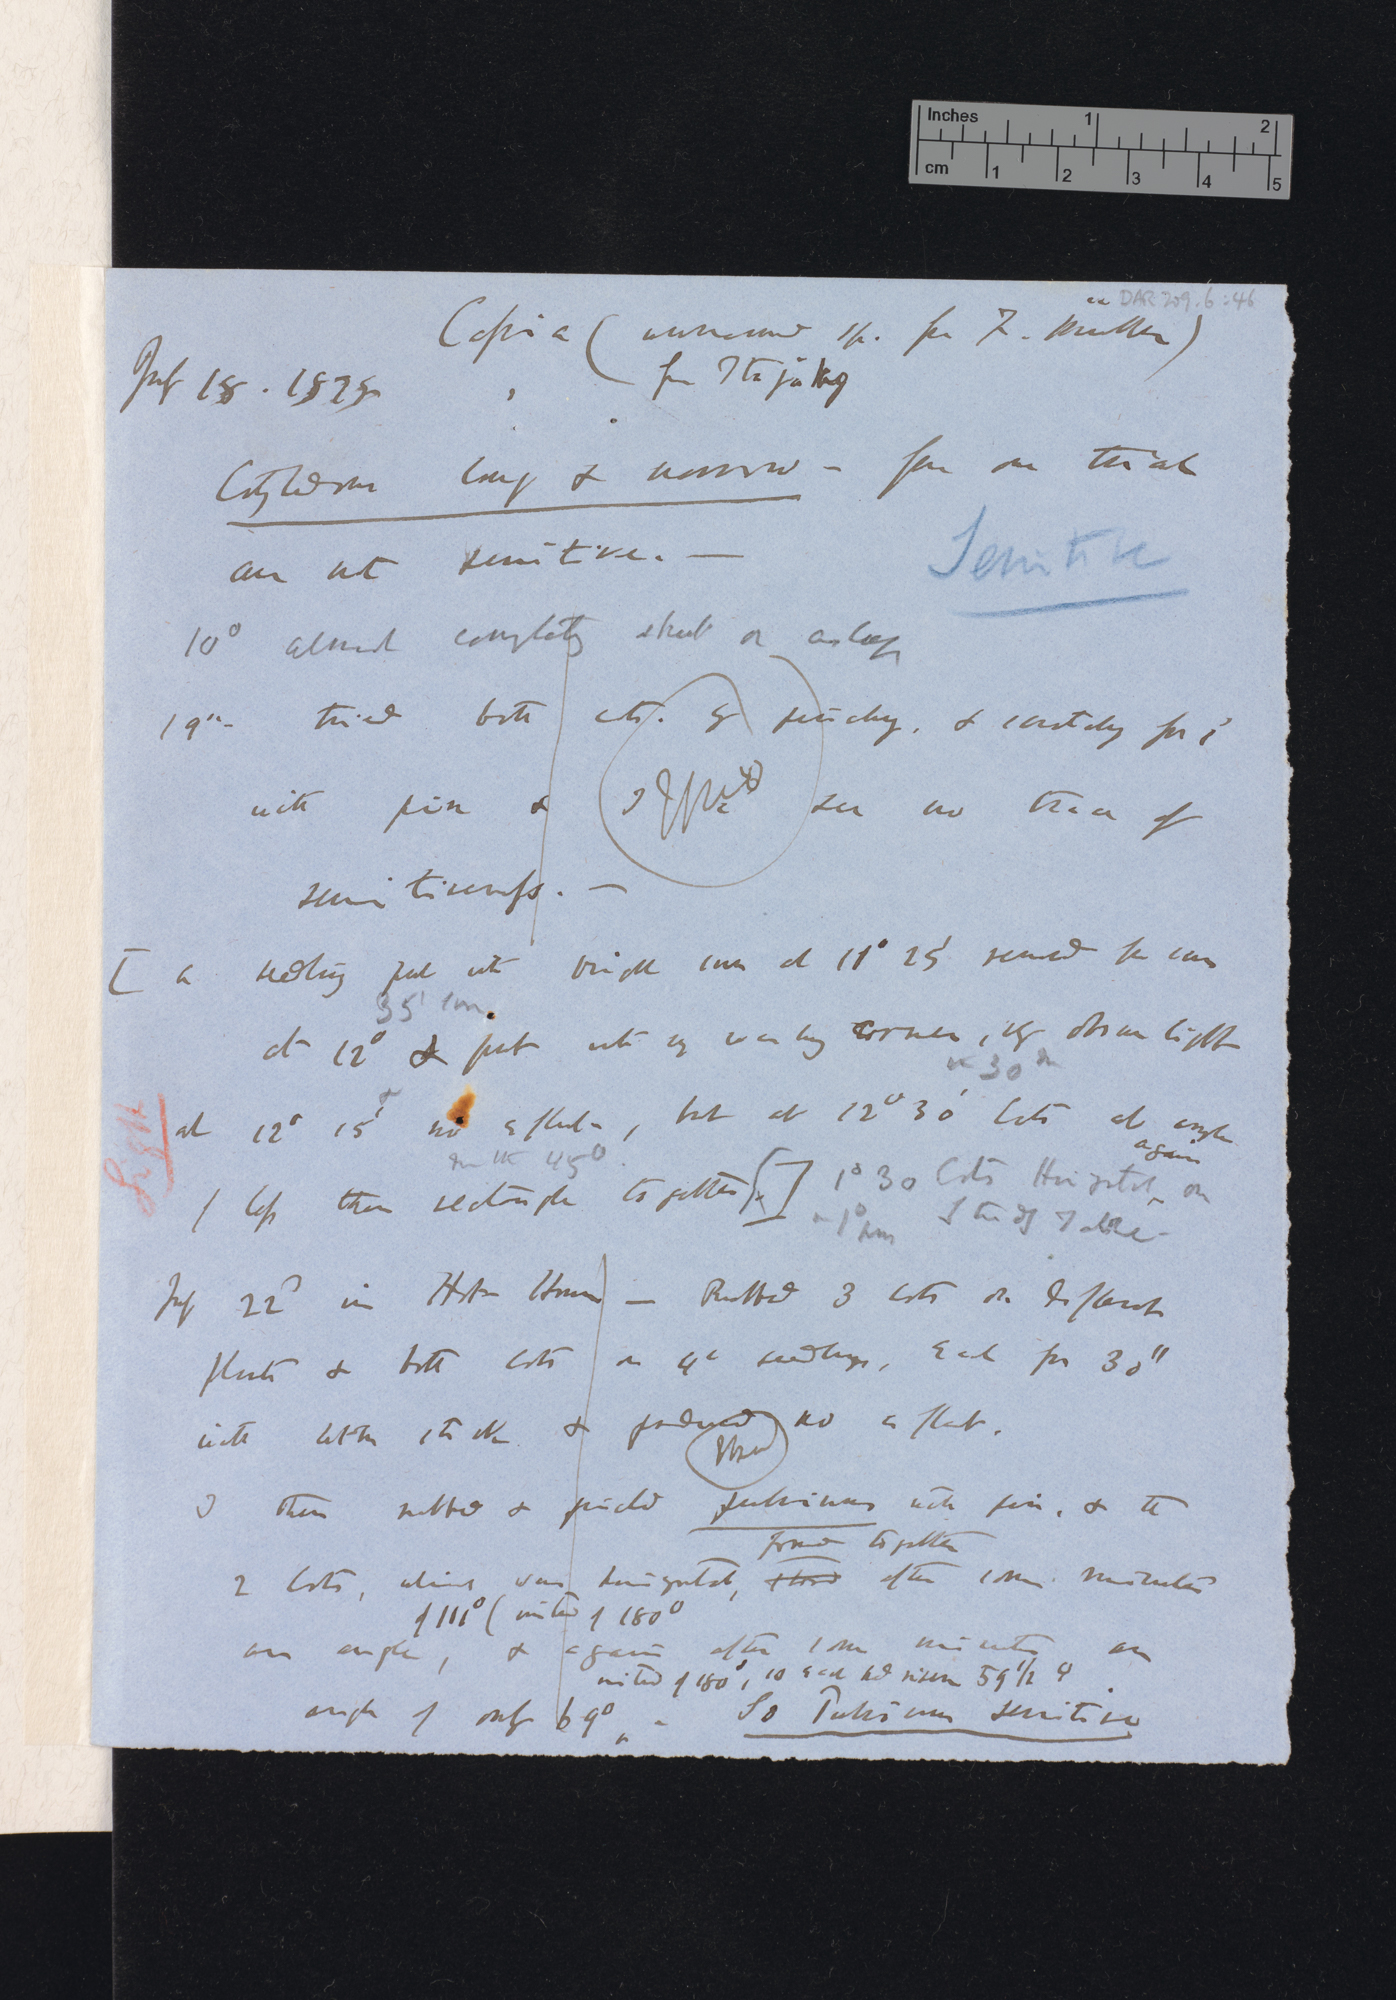 Inches 1 2
cm 1 2 3 4 5
DAR 209.6:46
Cassia (unnamed sp. from F. Müller)
July 18. 1878
from Itajahy
Cotyledons long & narrow — from one trial
are not sensitive. —
Sensitive
10° almost completely shut or asleep
19th tried both cots. by pinching, & scratching for
with pin & I see no trace of
sensitiveness. —
[ a seedling put into bright sun at 11° 25'
35'
at 12° & put into corner, obscure light
30°
Light
at 12° 15' no effect, but at 12° 30' cots at angle
45°
of less than rectangle together ] 1° 30 Cots Horizontal on
again
1° Study Table
July 22d in Hot House — Rubbed 3 cots on different
plants & both cots on 4th seedlings, each for 30"
with little stick & produced no effect.
I then rubbed & pricked pulvinus with pin, & the
formed together
2 cots, which were horizontal, after some minutes
of 111° (instead of 180°
an angle, & again after some minutes an
instead of 180°, so each had risen 59 1/2
angle of only 69° — So Pulvinus sensitive